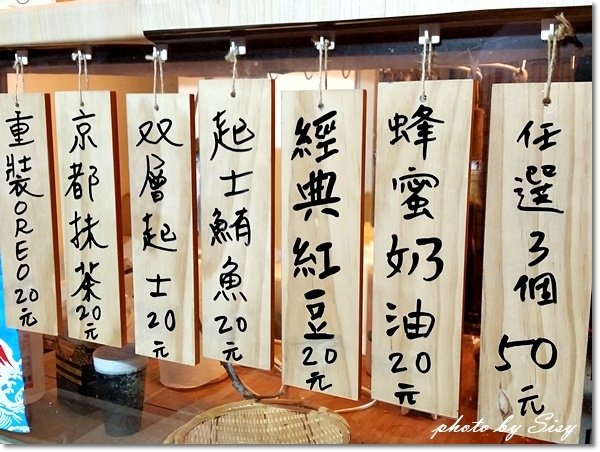 重裝OREO20元
京都抹茶20元
双層起士20元
起士鮪魚20元
經典紅豆20元
蜂蜜奶油20元
任選3個50元
photo by Sisy